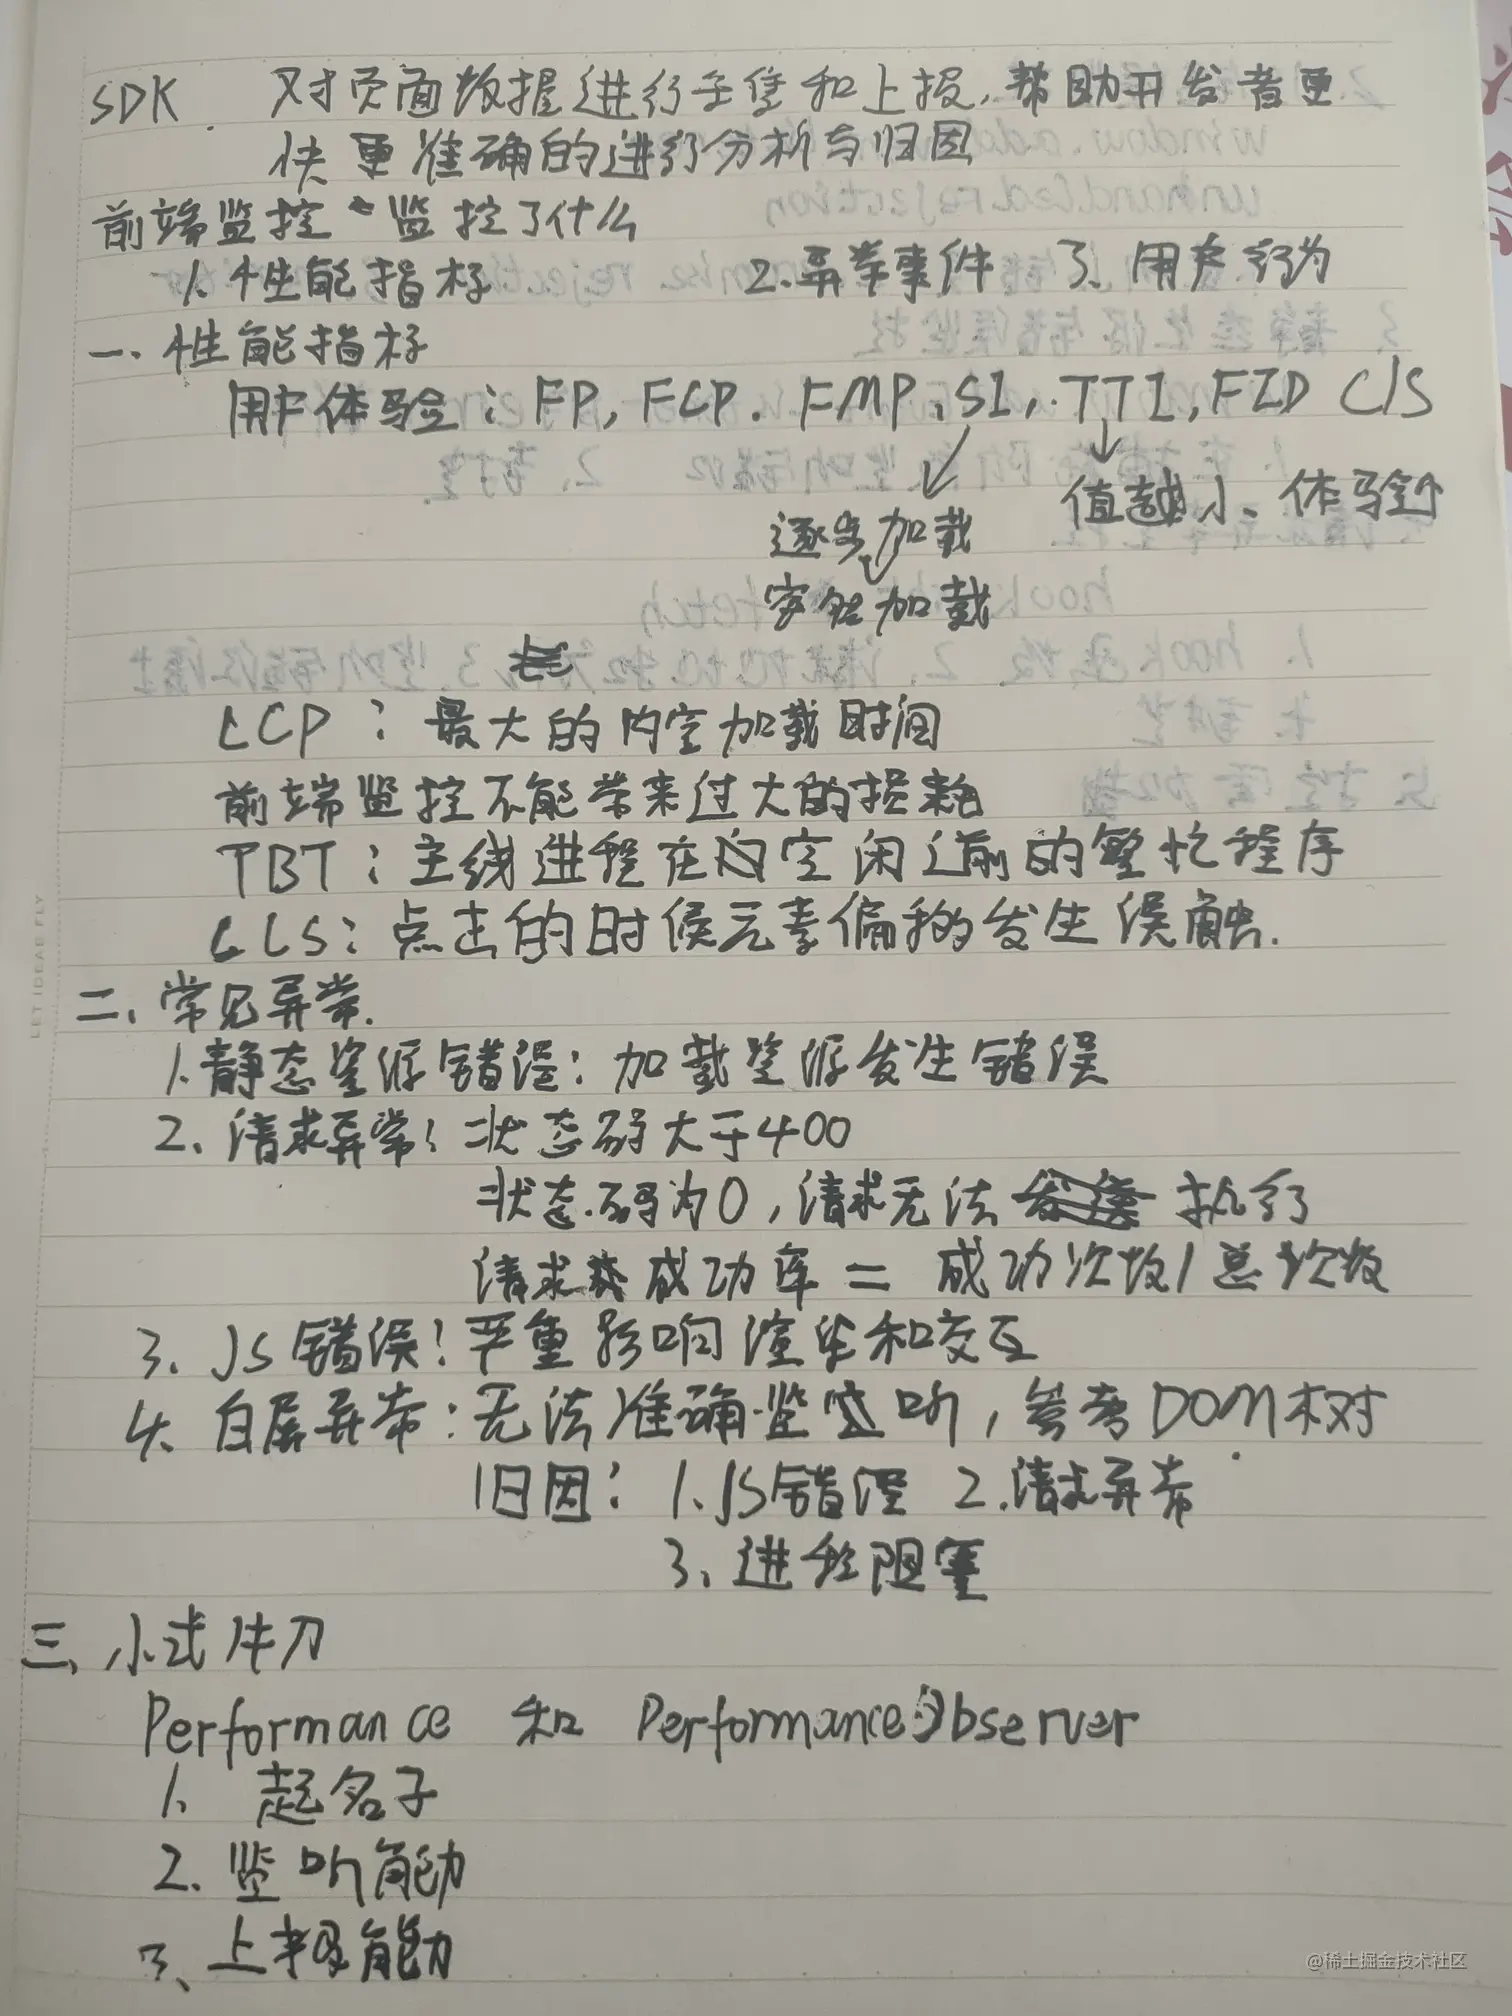 SDK 对页面数据进行采集和上报,帮助开发者更
快更准确的进行分析与归因
前端监控 监控了什么
1. 性能指标 2.异常事件 3. 用户行为
一、性能指标
用户体验: FP, FCP. FMP, SI, TTI, FID CLS
值越小、体验↑
逐步加载
加载
LCP: 最大的内容加载时间
前端监控不能带来过大的损耗
TBT: 主线进程在空闲之前的繁忙程序
CLS: 点击的时候元素偏移发生误触.
二、常见异常.
1.静态资源错误: 加载资源发生错误
2、请求异常: 状态码大于400
状态码为0,请求无法执行
请求成功率 = 成功次数/总次数
3、JS错误: 严重影响渲染和交互
4、白屏异常: 无法准确监听,参考DOM树
归因: 1.JS错误 2.请求异常
3、进程阻塞
三、小试牛刀
Performance 和 PerformanceObserver
1、 起名子
2. 监听能力
3、上报能力
LET IDEAS FLY
@稀土掘金技术社区